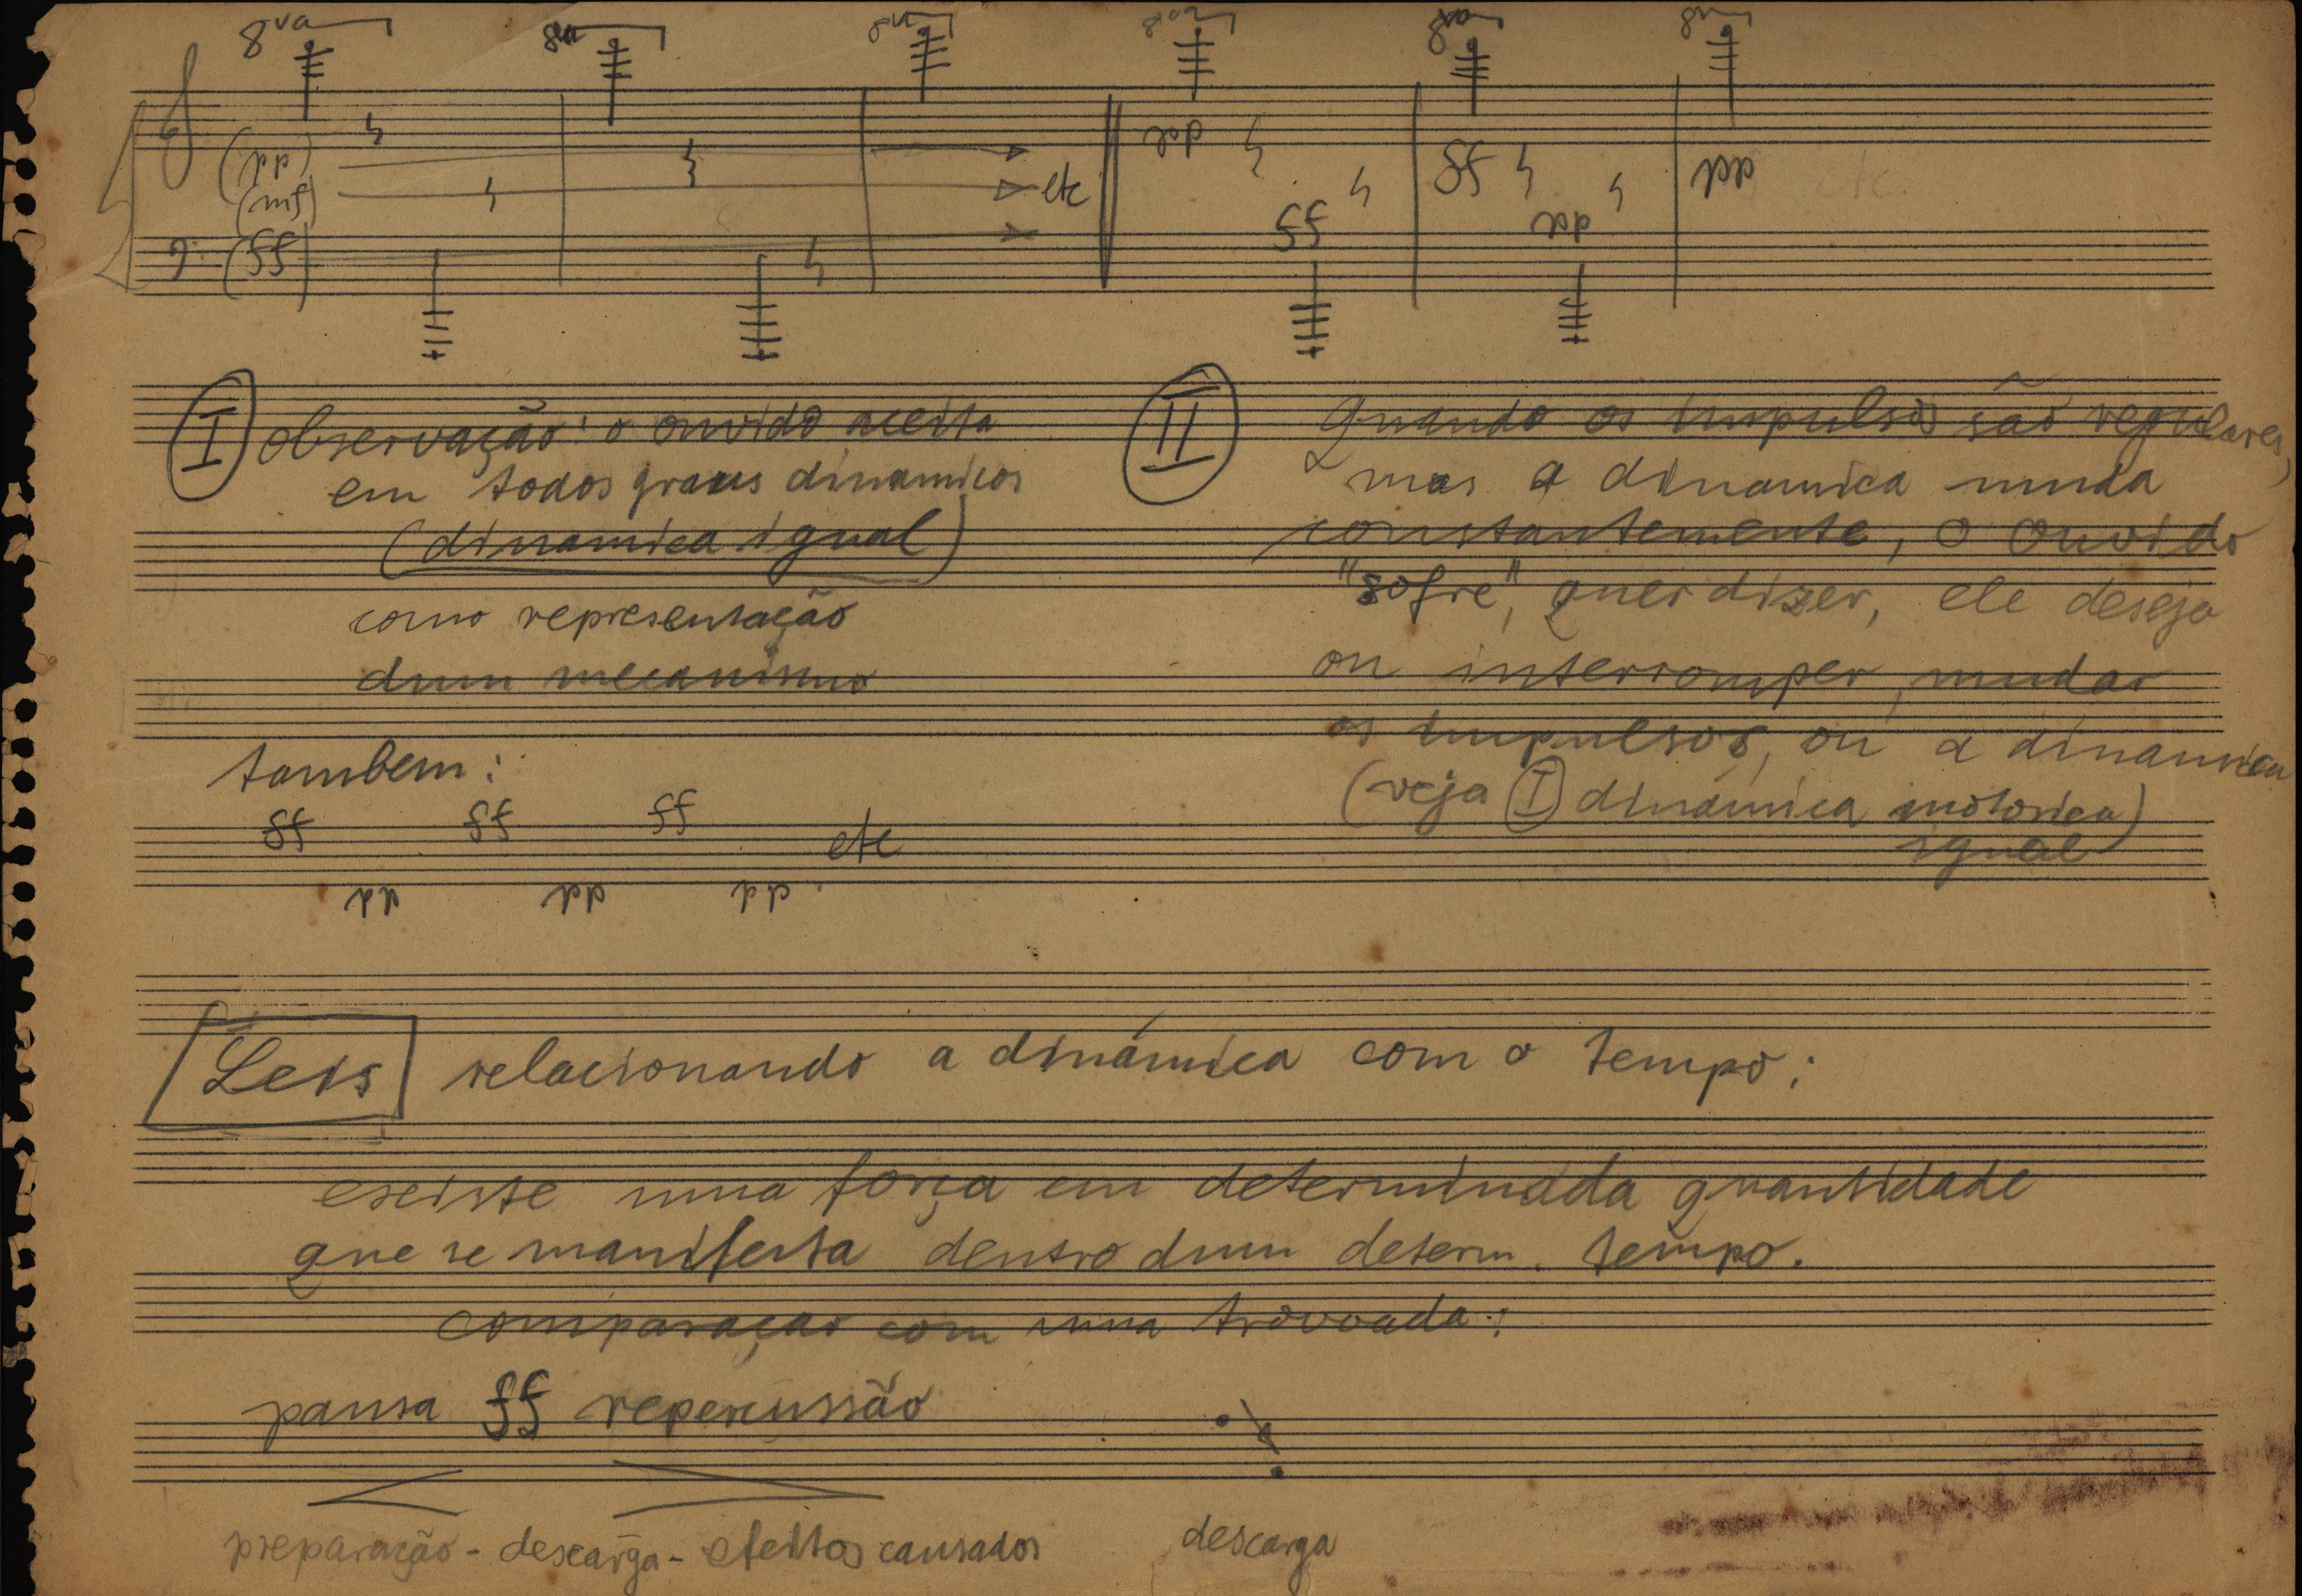 8va 8va 8va 8va 8va 8va
(pp)
(mf)
(ff)
etc
ppp ff ff ppp ppp etc.
I observação: o ouvido aceita
em todos graus dinamicos
(dinamica igual)
como representação
dum mecanismo
tambem:
ff ff ff etc
pp pp pp
II Quando os impulsos são regulares,
mas a dinamica muda
constantemente, o ouvido
"sofre", quer dizer, ele deseja
ou interromper, mudar
os impulsos, ou a dinámica
(veja I dinámica motorica)
igual
Leis relacionando a dinámica com o tempo:
existe uma força em determinada quantidade
que se manifesta dentro dum determ. tempo.
comparação com uma trovoada:
pausa ff repercussão
preparação - descarga - efeitos causados
descarga